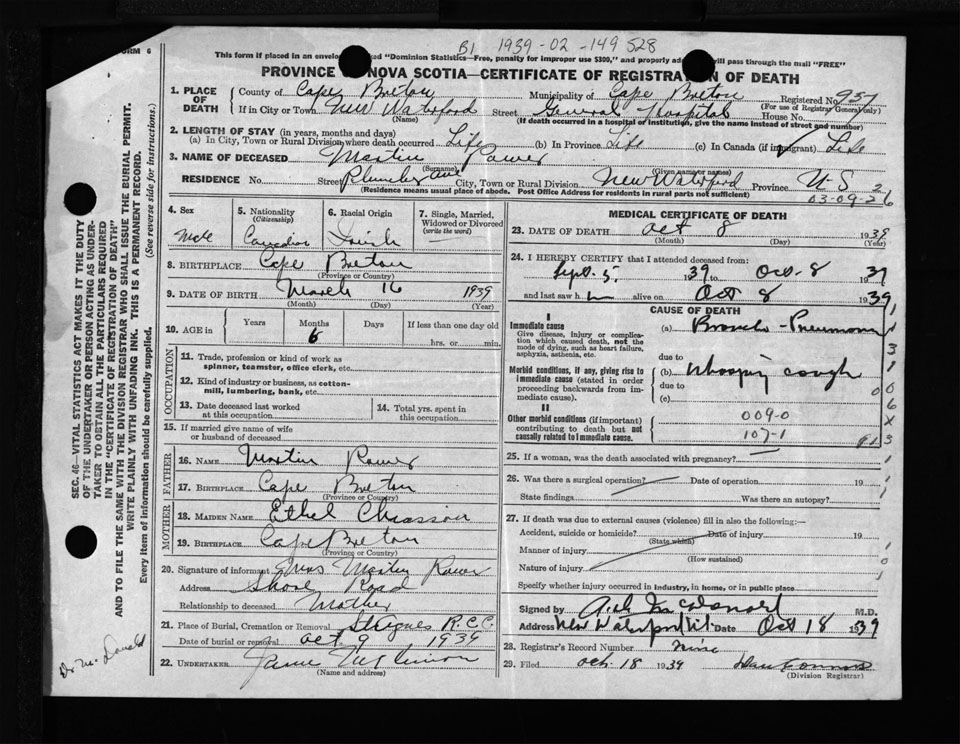 FORM 6
B1 1939-02-149528
This form if placed in an envelope marked "Dominion Statistics—Free, penalty for improper use $300," and properly addressed will pass through the mail "FREE"
PROVINCE OF NOVA SCOTIA—CERTIFICATE OF REGISTRATION OF DEATH
1. PLACE OF DEATH County of Cape Breton Municipality of Cape Breton Registered No. 937
(For use of Registrar General only)
If in City or Town New Waterford Street General Hospital House No.
(Name) (If death occurred in a hospital or institution, give the name instead of street and number)
2. LENGTH OF STAY (in years, months and days)
(a) In City, Town or Rural Division where death occurred Life (b) In Province Life (c) In Canada (if immigrant) Life
3. NAME OF DECEASED Martin Power
(Surname) (Given name or names)
RESIDENCE No. Street Plumber Ave City, Town or Rural Division New Waterford Province N S
(Residence means usual place of abode. Post Office Address for residents in rural parts not sufficient)
03-09-2 26
4. Sex Male
5. Nationality (Citizenship) Canadian
6. Racial Origin Irish
7. Single, Married, Widowed or Divorced (write the word) —
8. BIRTHPLACE Cape Breton
(Province or Country)
9. DATE OF BIRTH March 16 1939
(Month) (Day) (Year)
10. AGE in Years Months Days If less than one day old
6 hrs. or min.
OCCUPATION
11. Trade, profession or kind of work as spinner, teamster, office clerk, etc.
12. Kind of industry or business, as cotton-mill, lumbering, bank, etc.
13. Date deceased last worked at this occupation
14. Total yrs. spent in this occupation
15. If married give name of wife or husband of deceased
FATHER
16. NAME Martin Power
17. BIRTHPLACE Cape Breton
(Province or Country)
MOTHER
18. MAIDEN NAME Ethel Chiasson
19. BIRTHPLACE Cape Breton
(Province or Country)
20. Signature of informant Mrs Martin Power
Address Shore Road
Relationship to deceased Mother
21. Place of Burial, Cremation or Removal St Agnes R.C.C.
Date of burial or removal Oct 9 1939
22. UNDERTAKER
(Name and address)
MEDICAL CERTIFICATE OF DEATH
23. DATE OF DEATH Oct 8 1939
(Month) (Day) (Year)
24. I HEREBY CERTIFY that I attended deceased from:
Sept. 5 1939 to Oct. 8 1939
and last saw h m alive on Oct 8 1939
CAUSE OF DEATH
I
Immediate cause
Give disease, injury or complication which caused death, not the mode of dying, such as heart failure, asphyxia, asthenia, etc.
(a) Broncho-Pneumonia
due to
Morbid conditions, if any, giving rise to immediate cause (stated in order proceeding backwards from immediate cause).
(b) Whooping cough
due to
(c)
II
Other morbid conditions (if important) contributing to death but not causally related to immediate cause.
009-0
107-1
25. If a woman, was the death associated with pregnancy?
26. Was there a surgical operation? Date of operation 19
State findings Was there an autopsy?
27. If death was due to external causes (violence) fill in also the following:—
Accident, suicide or homicide? Date of injury 19
(State which)
Manner of injury
(How sustained)
Nature of injury
Specify whether injury occurred in industry, in home, or in public place
Signed by M.D.
Address New Waterford Date Oct 18 1939
28. Registrar's Record Number nine
29. Filed Oct. 18 1939
(Division Registrar)
SEC. 46—VITAL STATISTICS ACT MAKES IT THE DUTY
OF THE UNDERTAKER OR PERSON ACTING AS UNDER-
TAKER TO OBTAIN ALL THE PARTICULARS REQUIRED
IN THE "CERTIFICATE OF REGISTRATION OF DEATH"
AND TO FILE THE SAME WITH THE DIVISION REGISTRAR WHO SHALL ISSUE THE BURIAL PERMIT.
WRITE PLAINLY WITH UNFADING INK. THIS IS A PERMANENT RECORD.
Every item of information should be carefully supplied. (See reverse side for instructions.)
Dr. McDonald